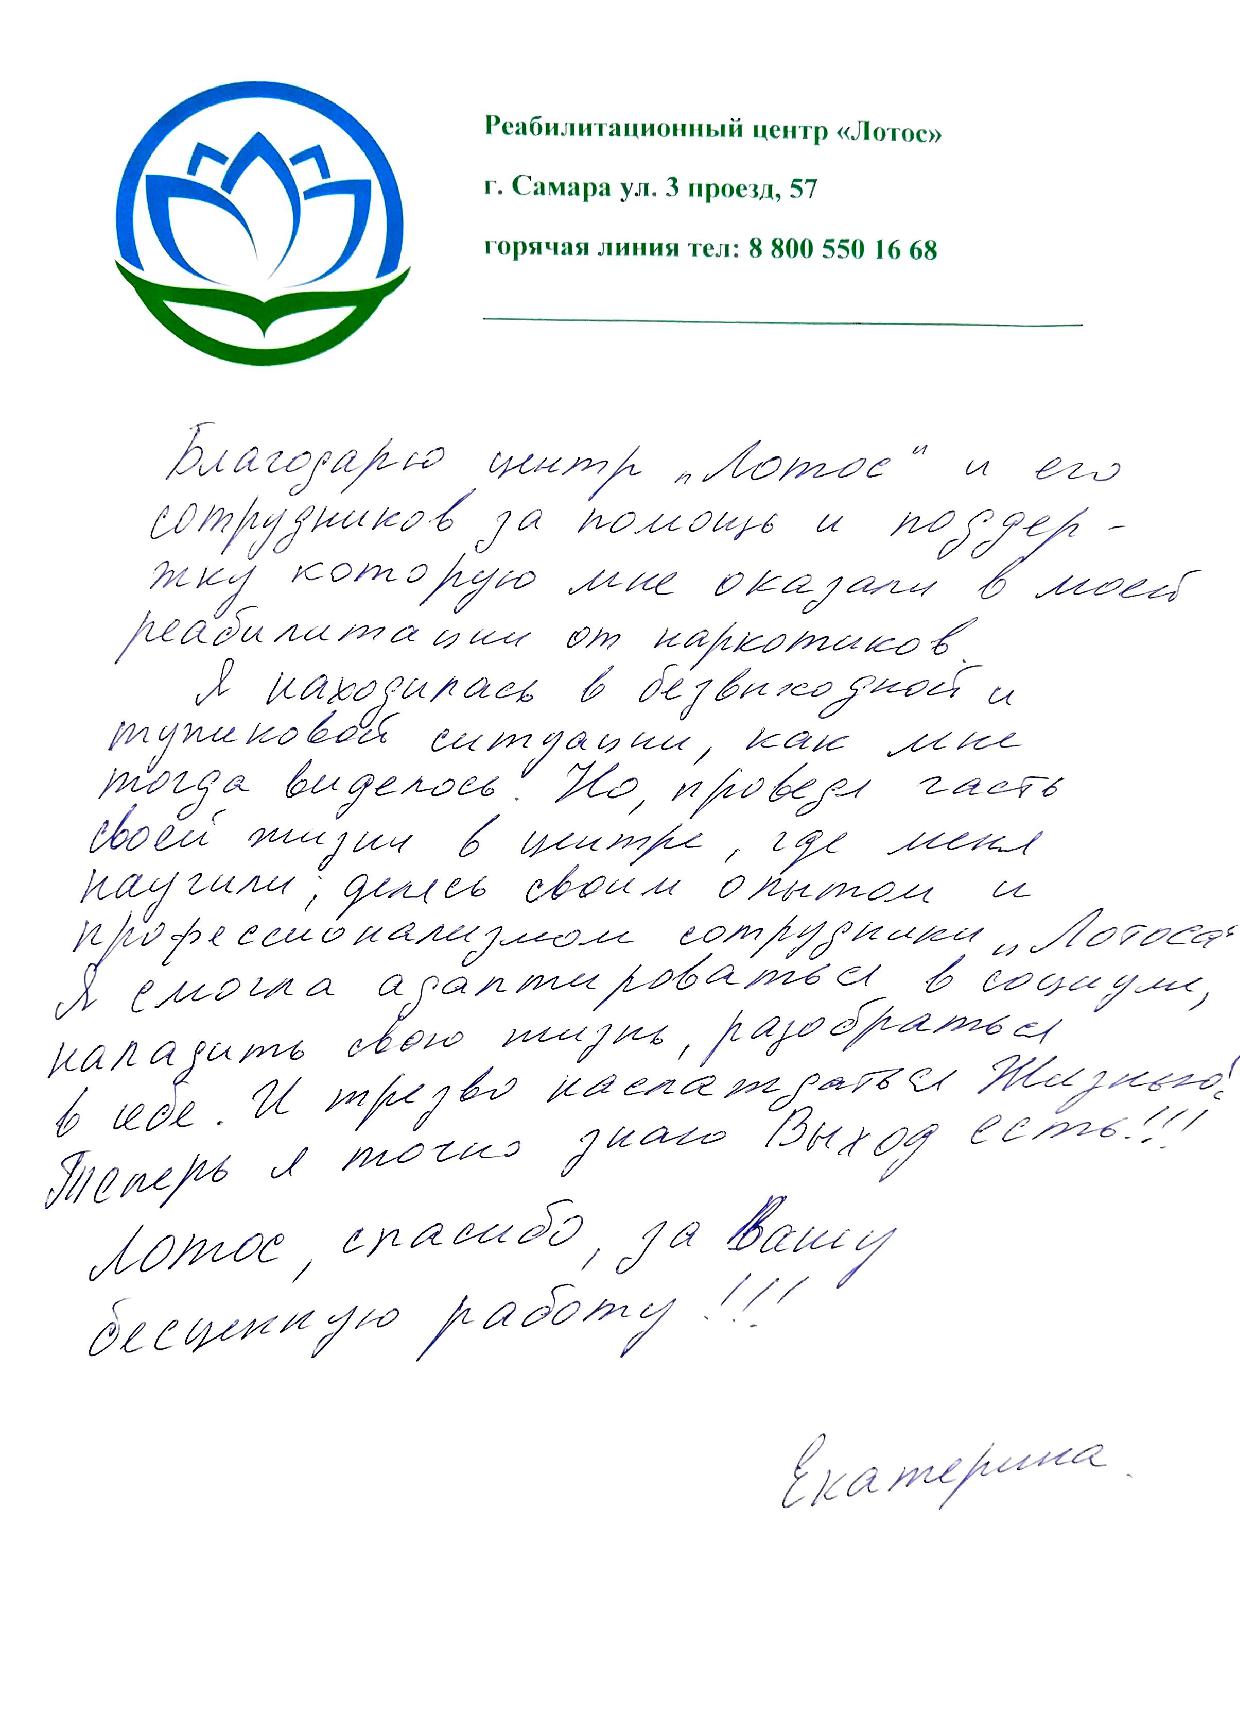 Реабилитационный центр «Лотос»
г. Самара ул. 3 проезд, 57
горячая линия тел: 8 800 550 16 68
Благодарю центр „Лотос“ и его
сотрудников за помощь и поддер-
жку которую мне оказали в моей
реабилитации от наркотиков.
Я находилась в безвыходной и
тупиковой ситуации, как мне
тогда виделось. Но, проведя часть
своей жизни в центре, где меня
научили, делясь своим опытом и
профессионализмом сотрудники „Лотоса“
Я смогла адаптироваться в социуми,
наладить свою жизнь, разобраться
в себе. И трезво наслаждаться Жизнью!
Теперь я точно знаю Выход есть!!!
Лотос, спасибо, за Вашу
бесценную работу!!!
Екатерина.